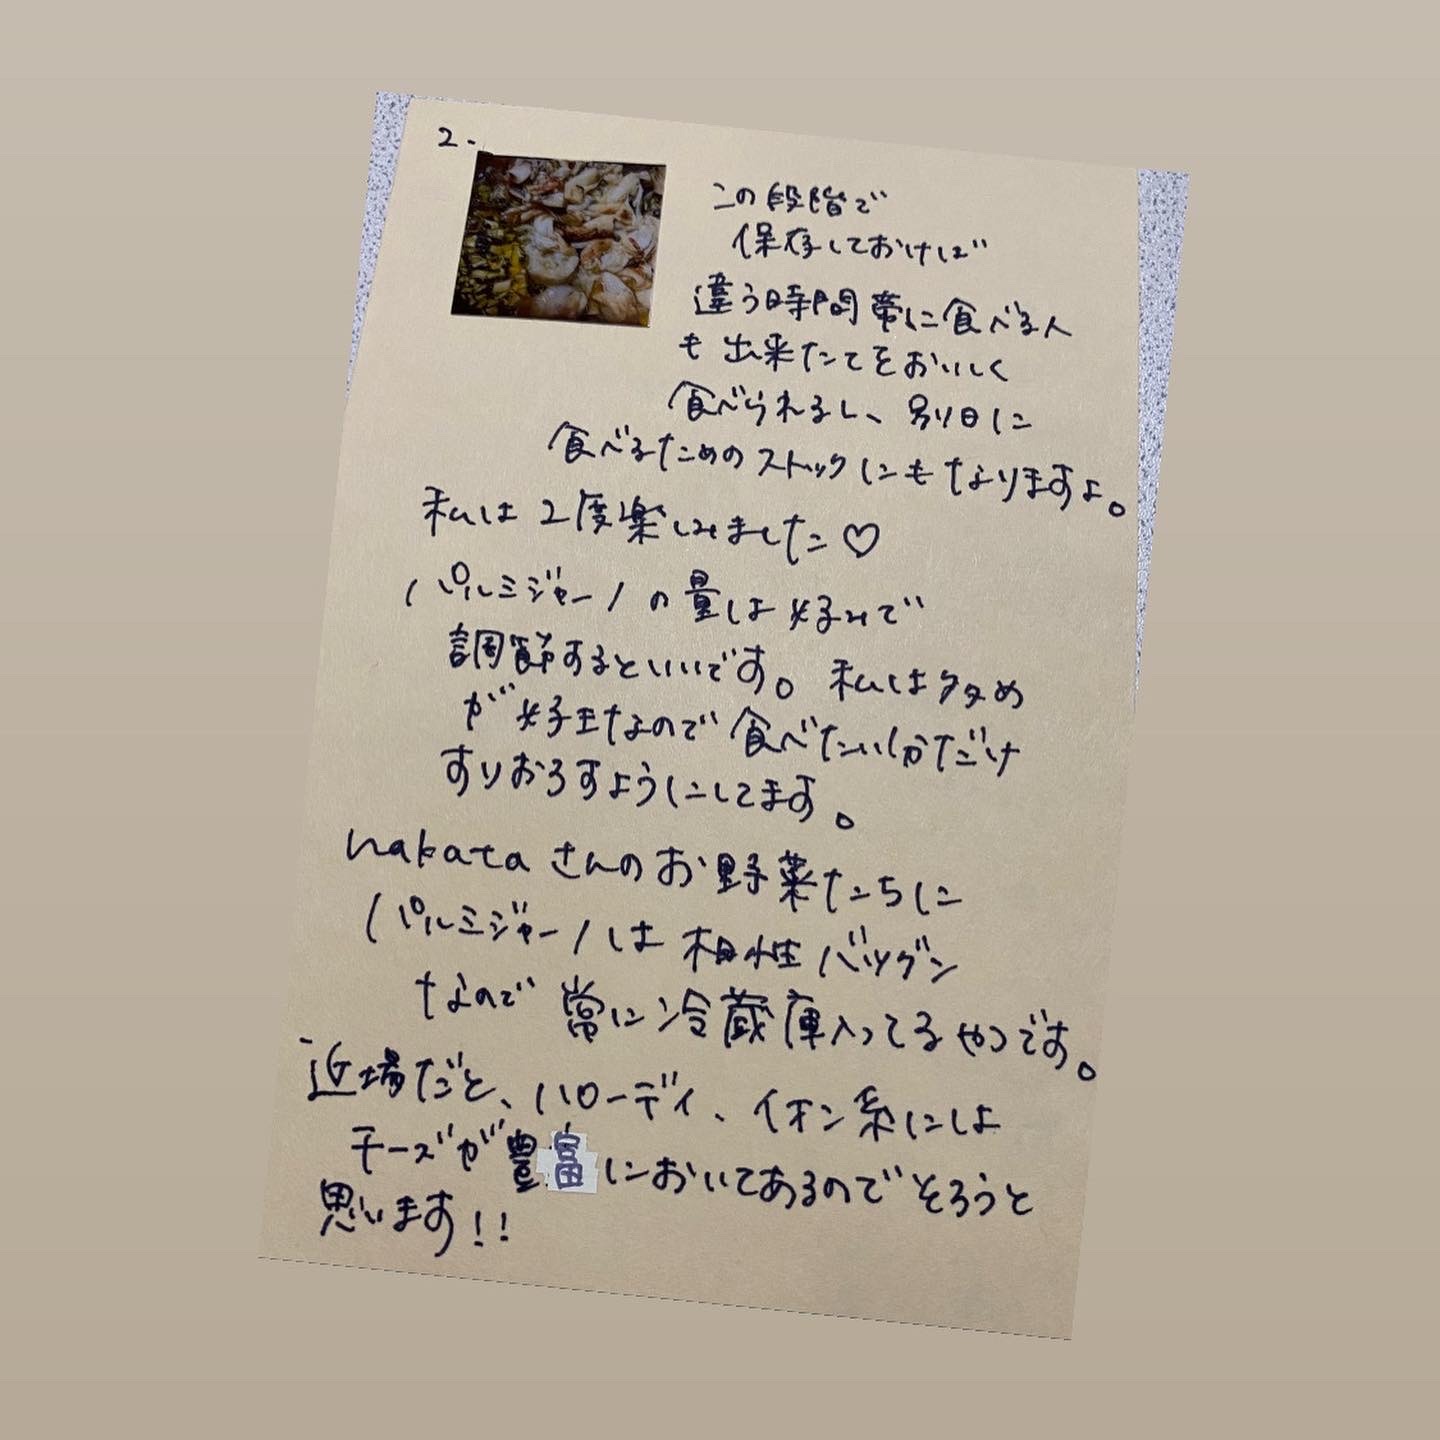 2.
この段階で
保存しておけば
違う時間帯に食べる人
も出来たてをおいしく
食べられるし、別日に
食べるためのストックにもなりますよ。
私は2度楽しみました♡
パルミジャーノの量は好みで
調節するといいです。私は多め
が好きなので食べたい分だけ
すりおろすようにしてます。
nakataさんのお野菜たちに
パルミジャーノは相性バツグン
なので常に冷蔵庫入ってるやつです。
近場だと、ハローデイ、イオン系には
チーズが豊富においてあるのでそろうと
思います!!